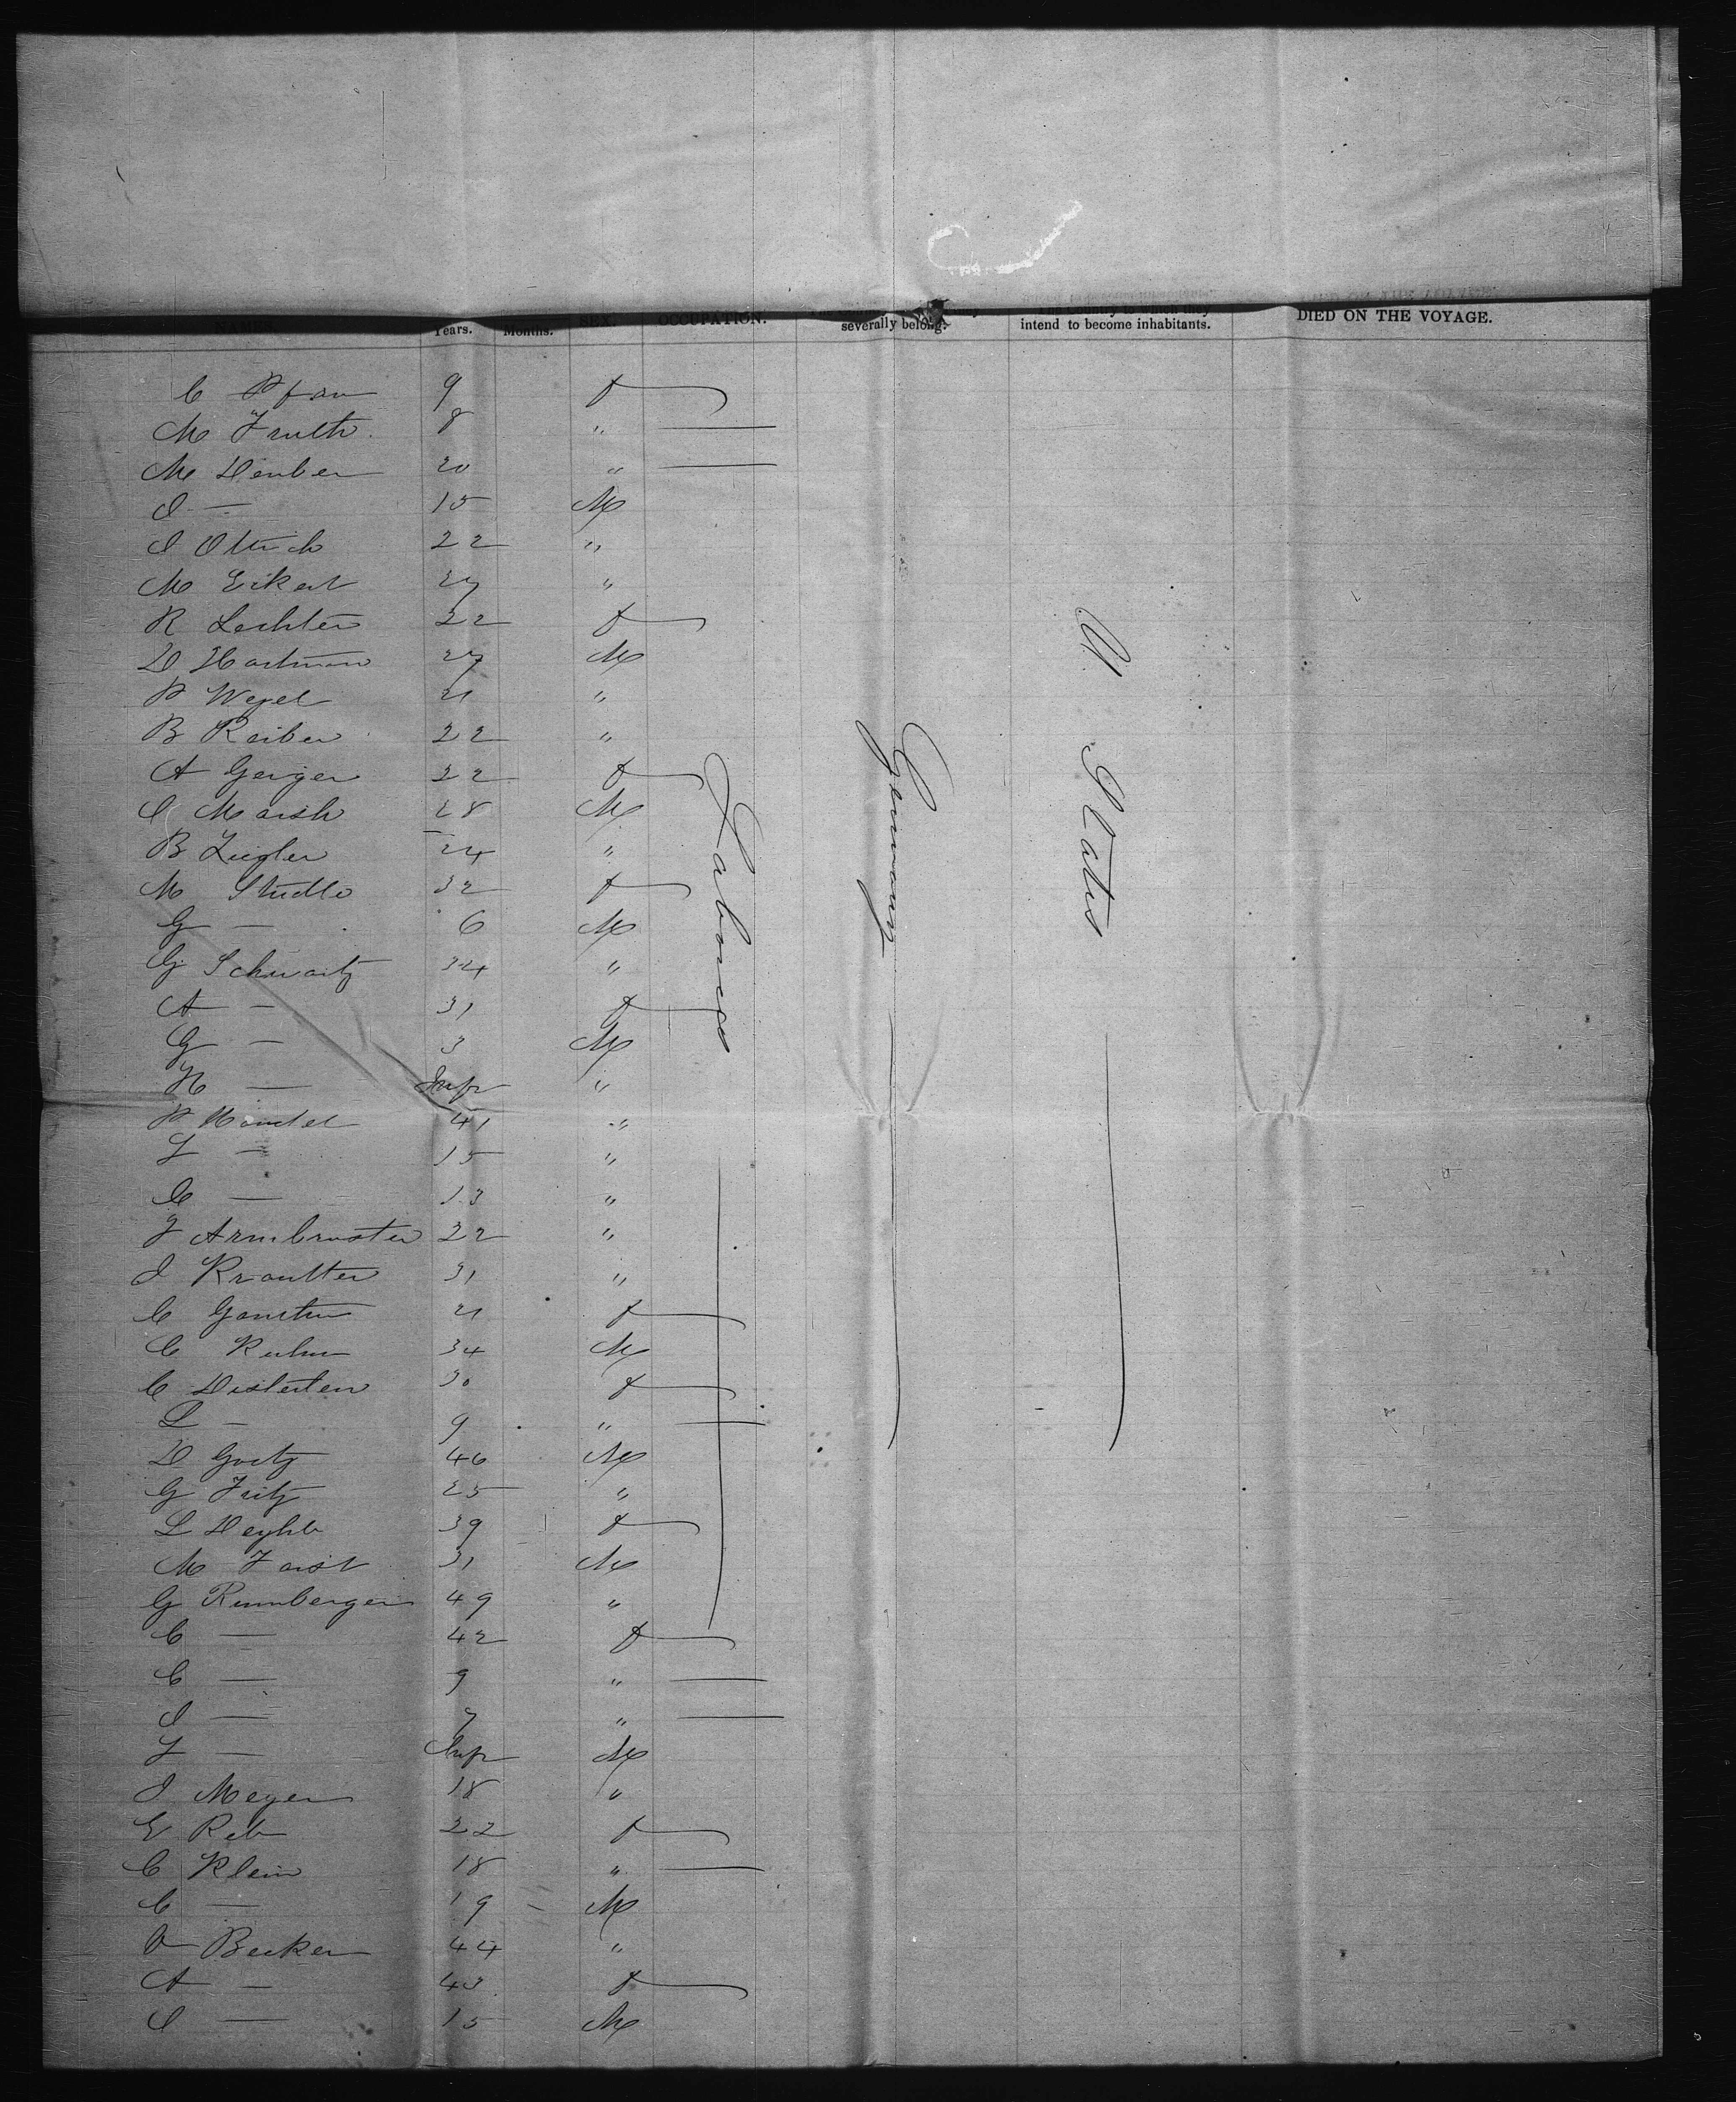 Years. Months. SEX. OCCUPATION. severally belong. intend to become inhabitants. DIED ON THE VOYAGE.
C Pfau 9 f
M Fruth 8 "
M Deuber 20 "
J — 15 M
J Ottrich 22 "
M Eikert 27 "
R Lechter 22 f
D Hartman 27 M
P Wezel 21 "
B Reiber 22 "
A Geiger 22 f
J Marsh 28 M
B Ziegler 24 "
M Studle 32 f
G — 6 M
G Schwartz 34 "
A — 31 f
G — 3 M
H — Inf "
P Mandel 41 "
F — 15 "
C — 13 "
F Armbruster 22 "
J Krautter 31 "
C 21 f
C Kuhn 34 M
C 30 f
L — 9 "
D Goetz 46 M
G Fritz 25 "
L Deyhle 39 f
M Faist 31 M
G Rennberger 49 "
C — 42 f
C — 9 "
J — 7 "
F — Inf M
J Meyer 18 "
E Reb 22 f
C Klein 18 "
C — 19 M
V Becker 44 "
A — 43 f
J — 15 M
Laborers
Germany
U. States